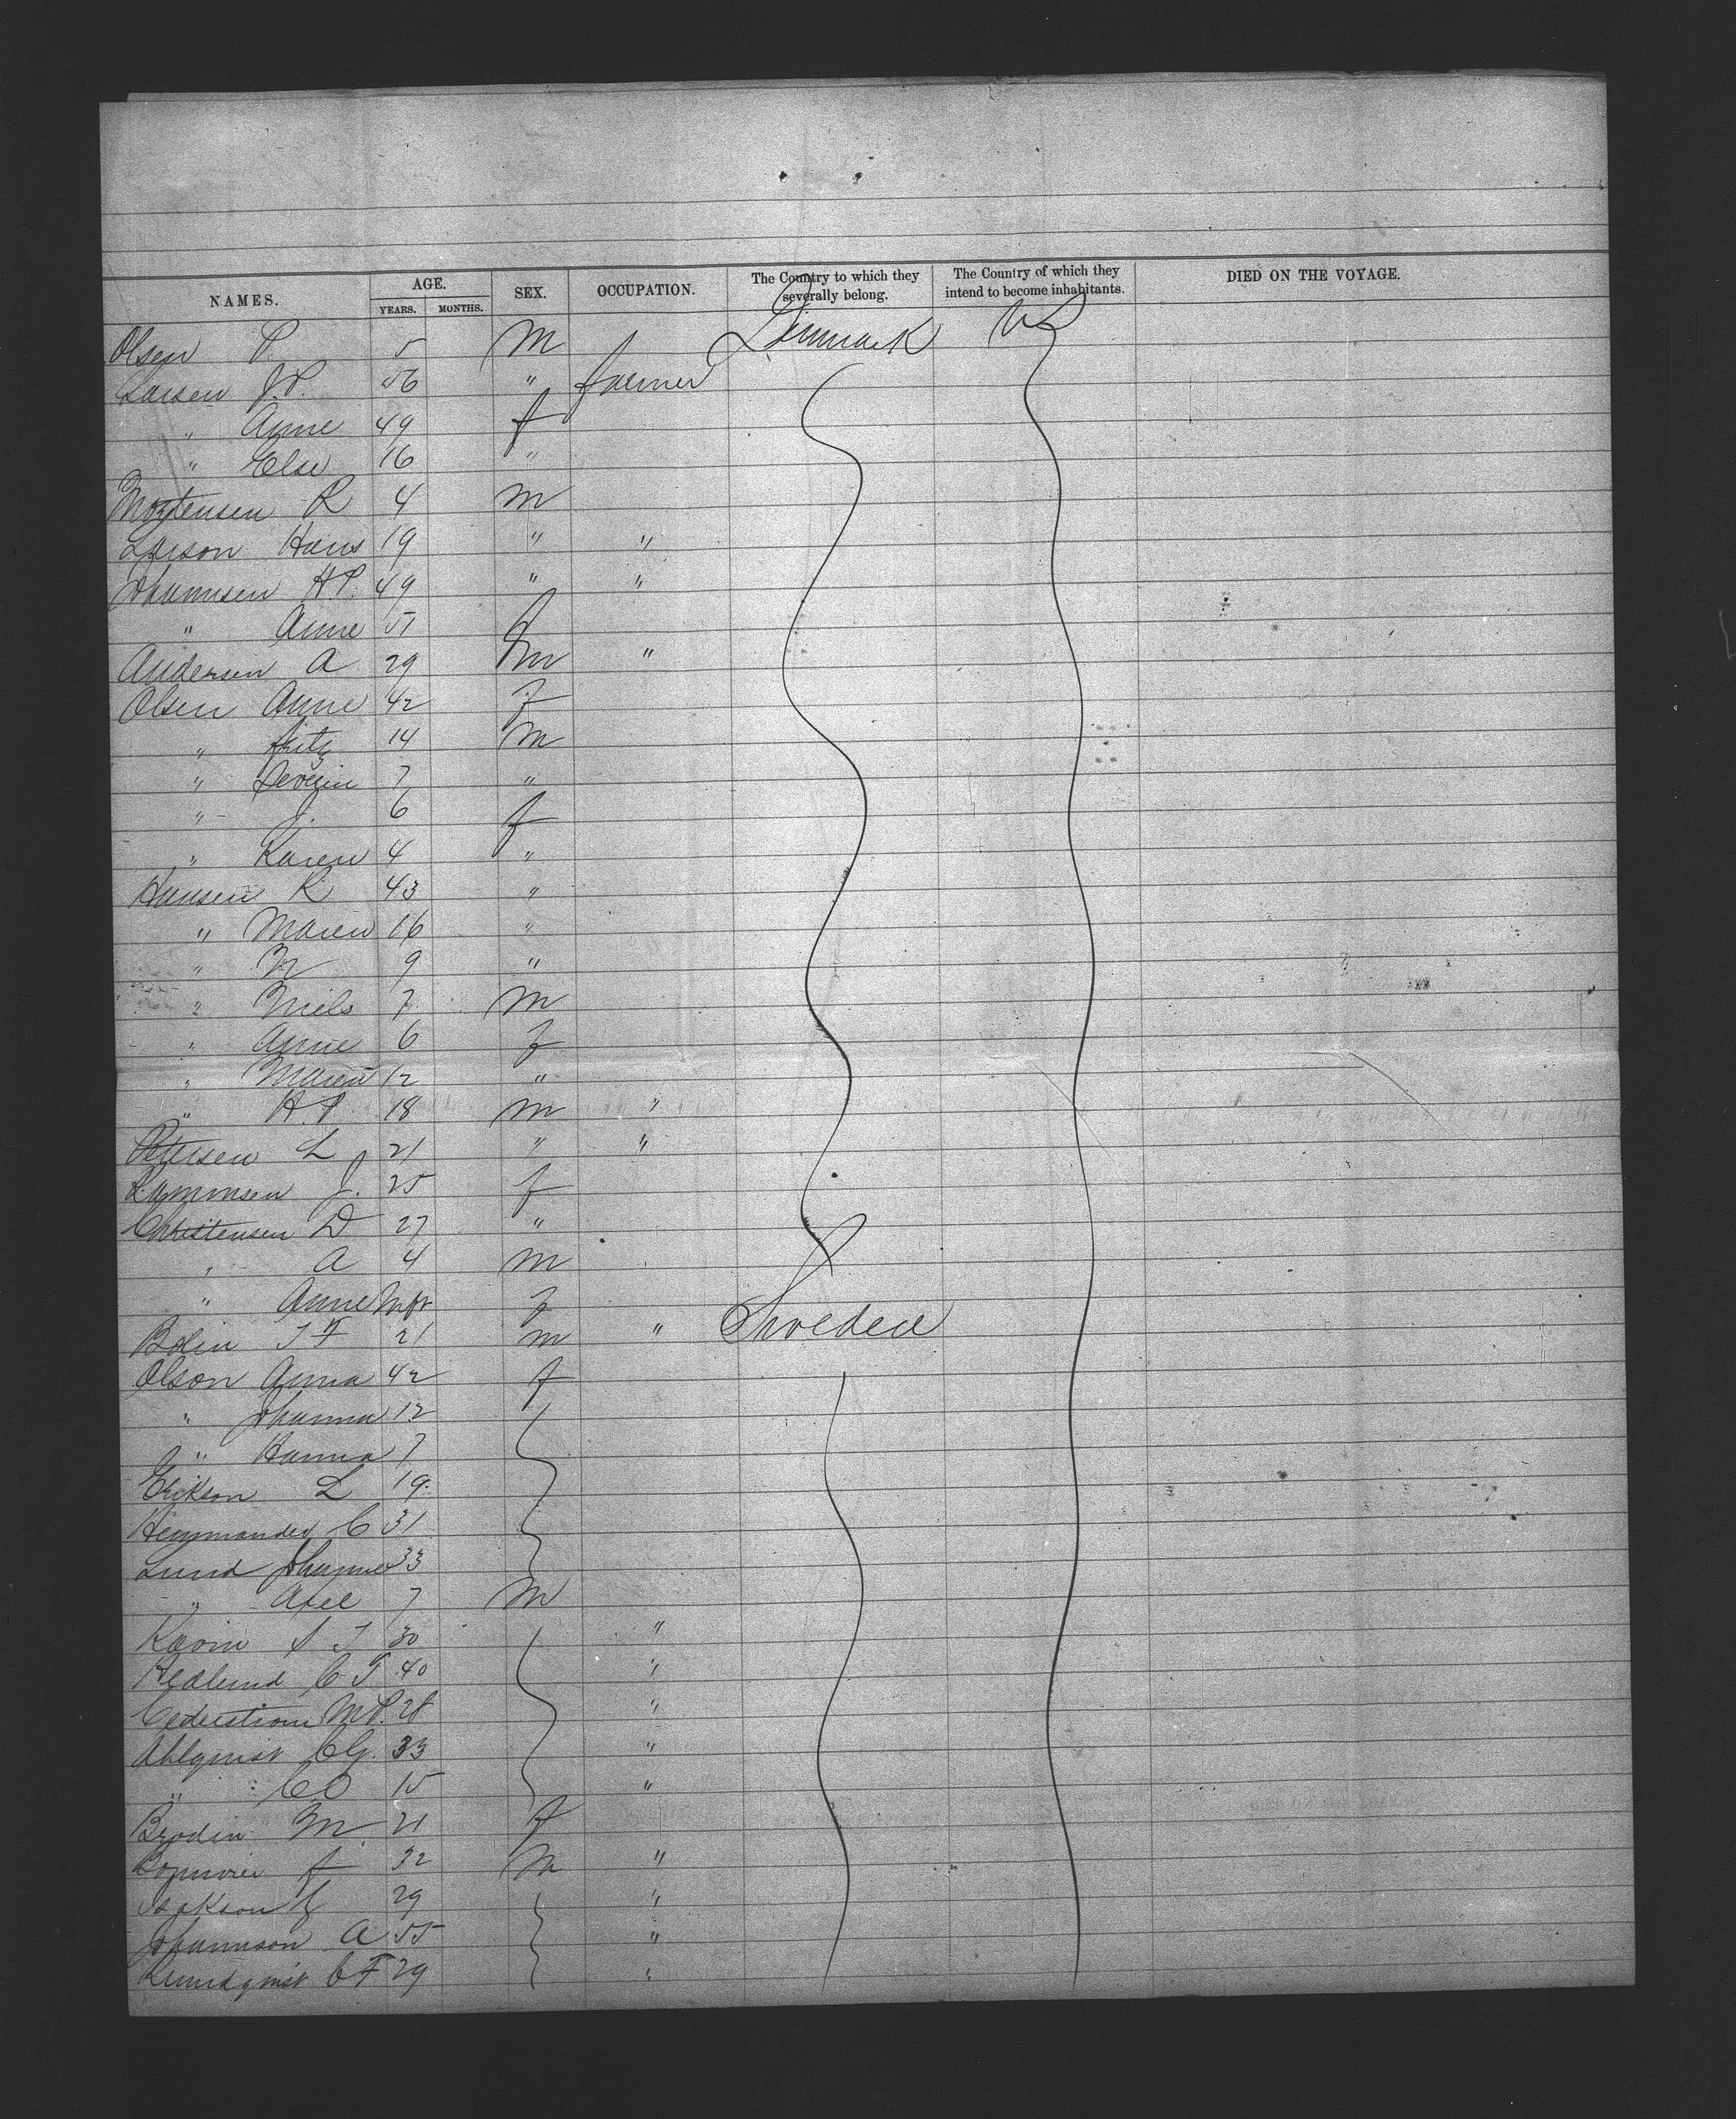 NAMES. AGE. YEARS. MONTHS. SEX. OCCUPATION. The Country to which they severally belong. The Country of which they intend to become inhabitants. DIED ON THE VOYAGE.
Olsen P. 5 M Denmark US
Larsen J.P. 56 " farmer
" Anne 49 f
" Else 16 "
Mortensen R 4 M
Larson Hans 19 " "
Johannsen H P. 49 " "
" Anne 51 f
Andersen A 29 m "
Olsen Anne 42 f
" fritz 14 M
" Severin 7 "
" J. 6 f
" Karen 4 "
Hansen K 43 "
" Maren 16 "
" M 9 "
" Niels 7 M
" Anne 6 f
" Maren 12 "
" H.P. 18 m "
Petersen L 21 " "
J. 25 f
Christensen D 27 "
" A 4 M
" Anne Inft f
Bolin J F 21 m " Sweden
Olson Anna 42 f
" Johanna 12
" Hanna 7
Erikson L 19
C 31
Lund Johanna 33
" Axel 7 M
J 30 "
Hedlund C J 40 "
Cederstrom M P. 28 "
Ahlqvist C G. 33 "
" C O 15 "
Brodin M 21 f
f 32 M "
Isakson 29 "
Johannson A 55 "
Lundqvist C F 29 "